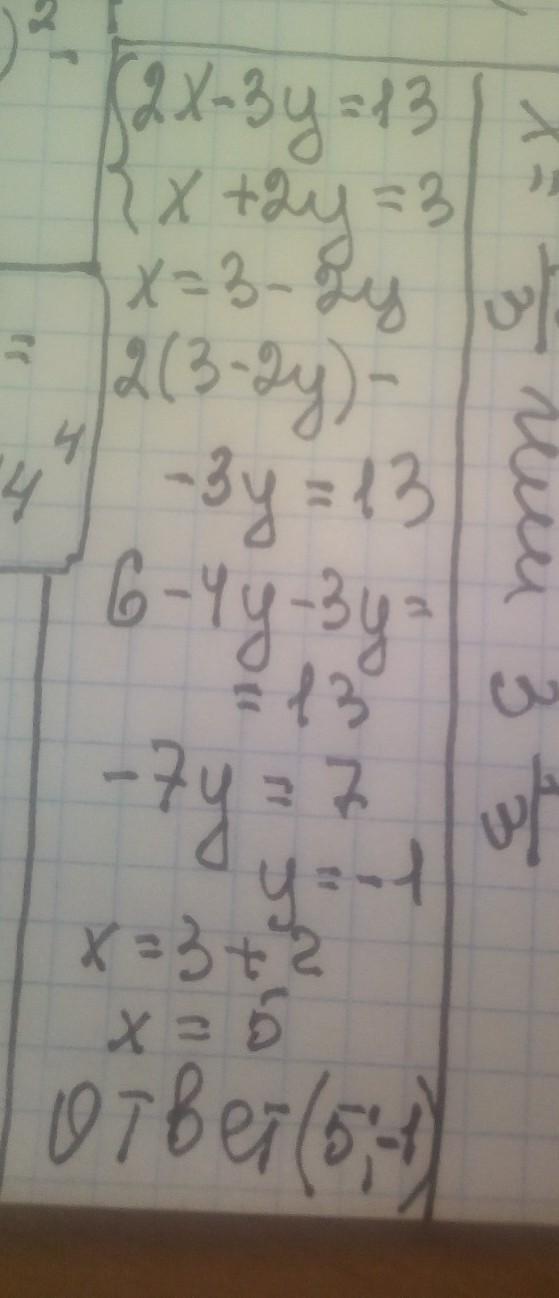 2x-3y=13
x+2y=3
x=3-2y
2(3-2y)-
-3y=13
6-4y-3y=
=13
-7y=7
y=-1
x=3+2
x=5
Ответ(5;-1)